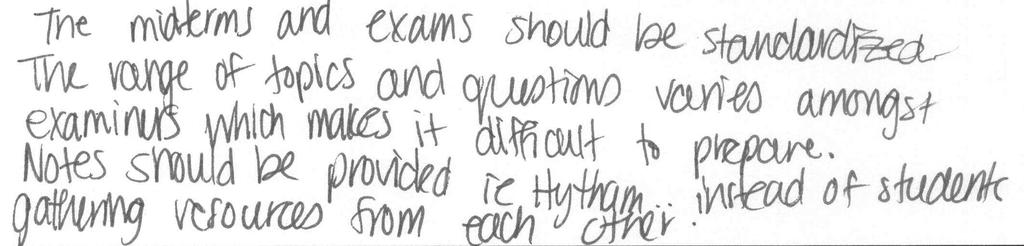 The midterms and exams should be standardized
The range of topics and questions varies amongst
examiners which makes it difficult to prepare.
Notes should be provided ie Hytham... instead of students
gathering resources from each other.